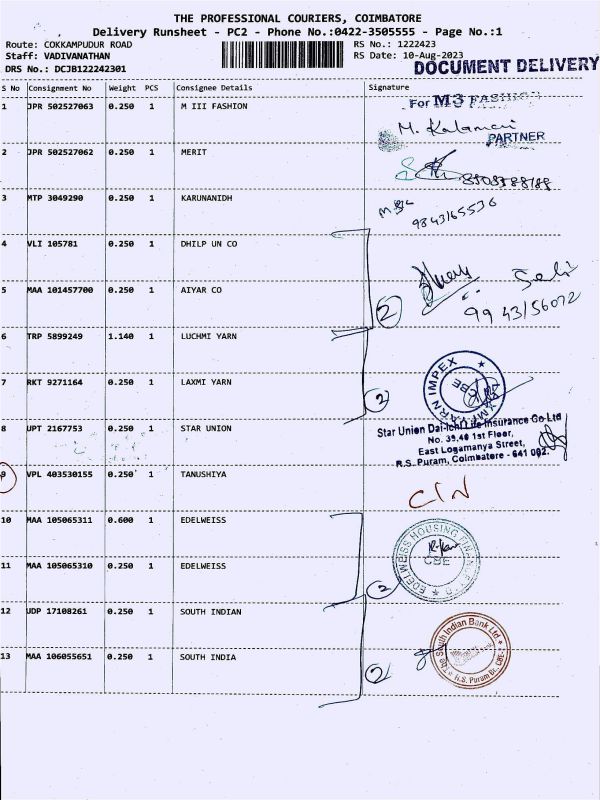 THE PROFESSIONAL COURIERS, COIMBATORE
Delivery Runsheet - PC2 - Phone No.:0422-3505555 - Page No.:1
Route: COKKAMPUDUR ROAD RS No.: 1222423
Staff: VADIVANATHAN RS Date: 10-Aug-2023
DRS No.: DCJB122242301 DOCUMENT DELIVERY
S No Consignment No Weight PCS Consignee Details Signature
1 JPR 502527063 0.250 1 M III FASHION For M3 FASHION
M. Kalamani
PARTNER
2 JPR 502527062 0.250 1 MERIT
3 MTP 3049290 0.250 1 KARUNANIDH
9843165536
4 VLI 105781 0.250 1 DHILP UN CO
5 MAA 101457700 0.250 1 AIYAR CO
2 99 43156072
6 TRP 5899249 1.140 1 LUCHMI YARN
7 RKT 9271164 0.250 1 LAXMI YARN
2 YARN IMPEX CBE
8 UPT 2167753 0.250 1 STAR UNION
Star Union Dai-ichi Life Insurance Co Ltd
No. 39,40 1st Floor,
East Logamanya Street,
R.S. Puram, Coimbatore - 641 002.
9 VPL 403530155 0.250 1 TANUSHIYA
C/N
10 MAA 105065311 0.600 1 EDELWEISS
11 MAA 105065310 0.250 1 EDELWEISS
2 EDELWEISS HOUSING FINANCE CBE
12 UDP 17108261 0.250 1 SOUTH INDIAN
13 MAA 106055651 0.250 1 SOUTH INDIA
2 The South Indian Bank Ltd R.S. Puram Br., CBE